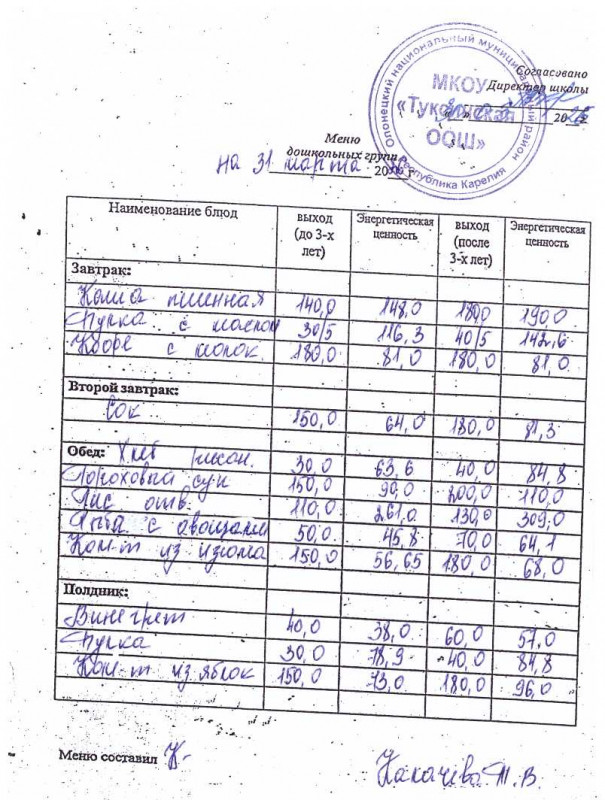 Согласовано
Директор школы
20
Олонецкий национальный муниципальный район
Республика Карелия
МКОУ
«Туксинская
ООШ»
Меню
дошкольных групп
на 31 марта 20 г
Наименование блюд | выход (до 3-х лет) | Энергетическая ценность | выход (после 3-х лет) | Энергетическая ценность
Завтрак:
Каша пшенная 140,0 148,0 180,0 190,0
Булка с маслом 30/5 116,3 40/5 142,6
Кофе с молок. 180,0 81,0 180,0 81,0
Второй завтрак:
Сок 150,0 64,0 180,0 81,3
Обед: Хлеб 30,0 63,6 40,0 84,8
Гороховый суп 150,0 90,0 200,0 110,0
Рис отв. 110,0 261,0 130,0 309,0
с овощами 50,0 45,8 70,0 64,1
Комп-т из изюма 150,0 56,65 180,0 68,0
Полдник:
Винегрет 40,0 38,0 60,0 57,0
Булка 30,0 78,9 40,0 84,8
Комп-т из яблок 150,0 73,0 180,0 96,0
Меню составил
Т. В.